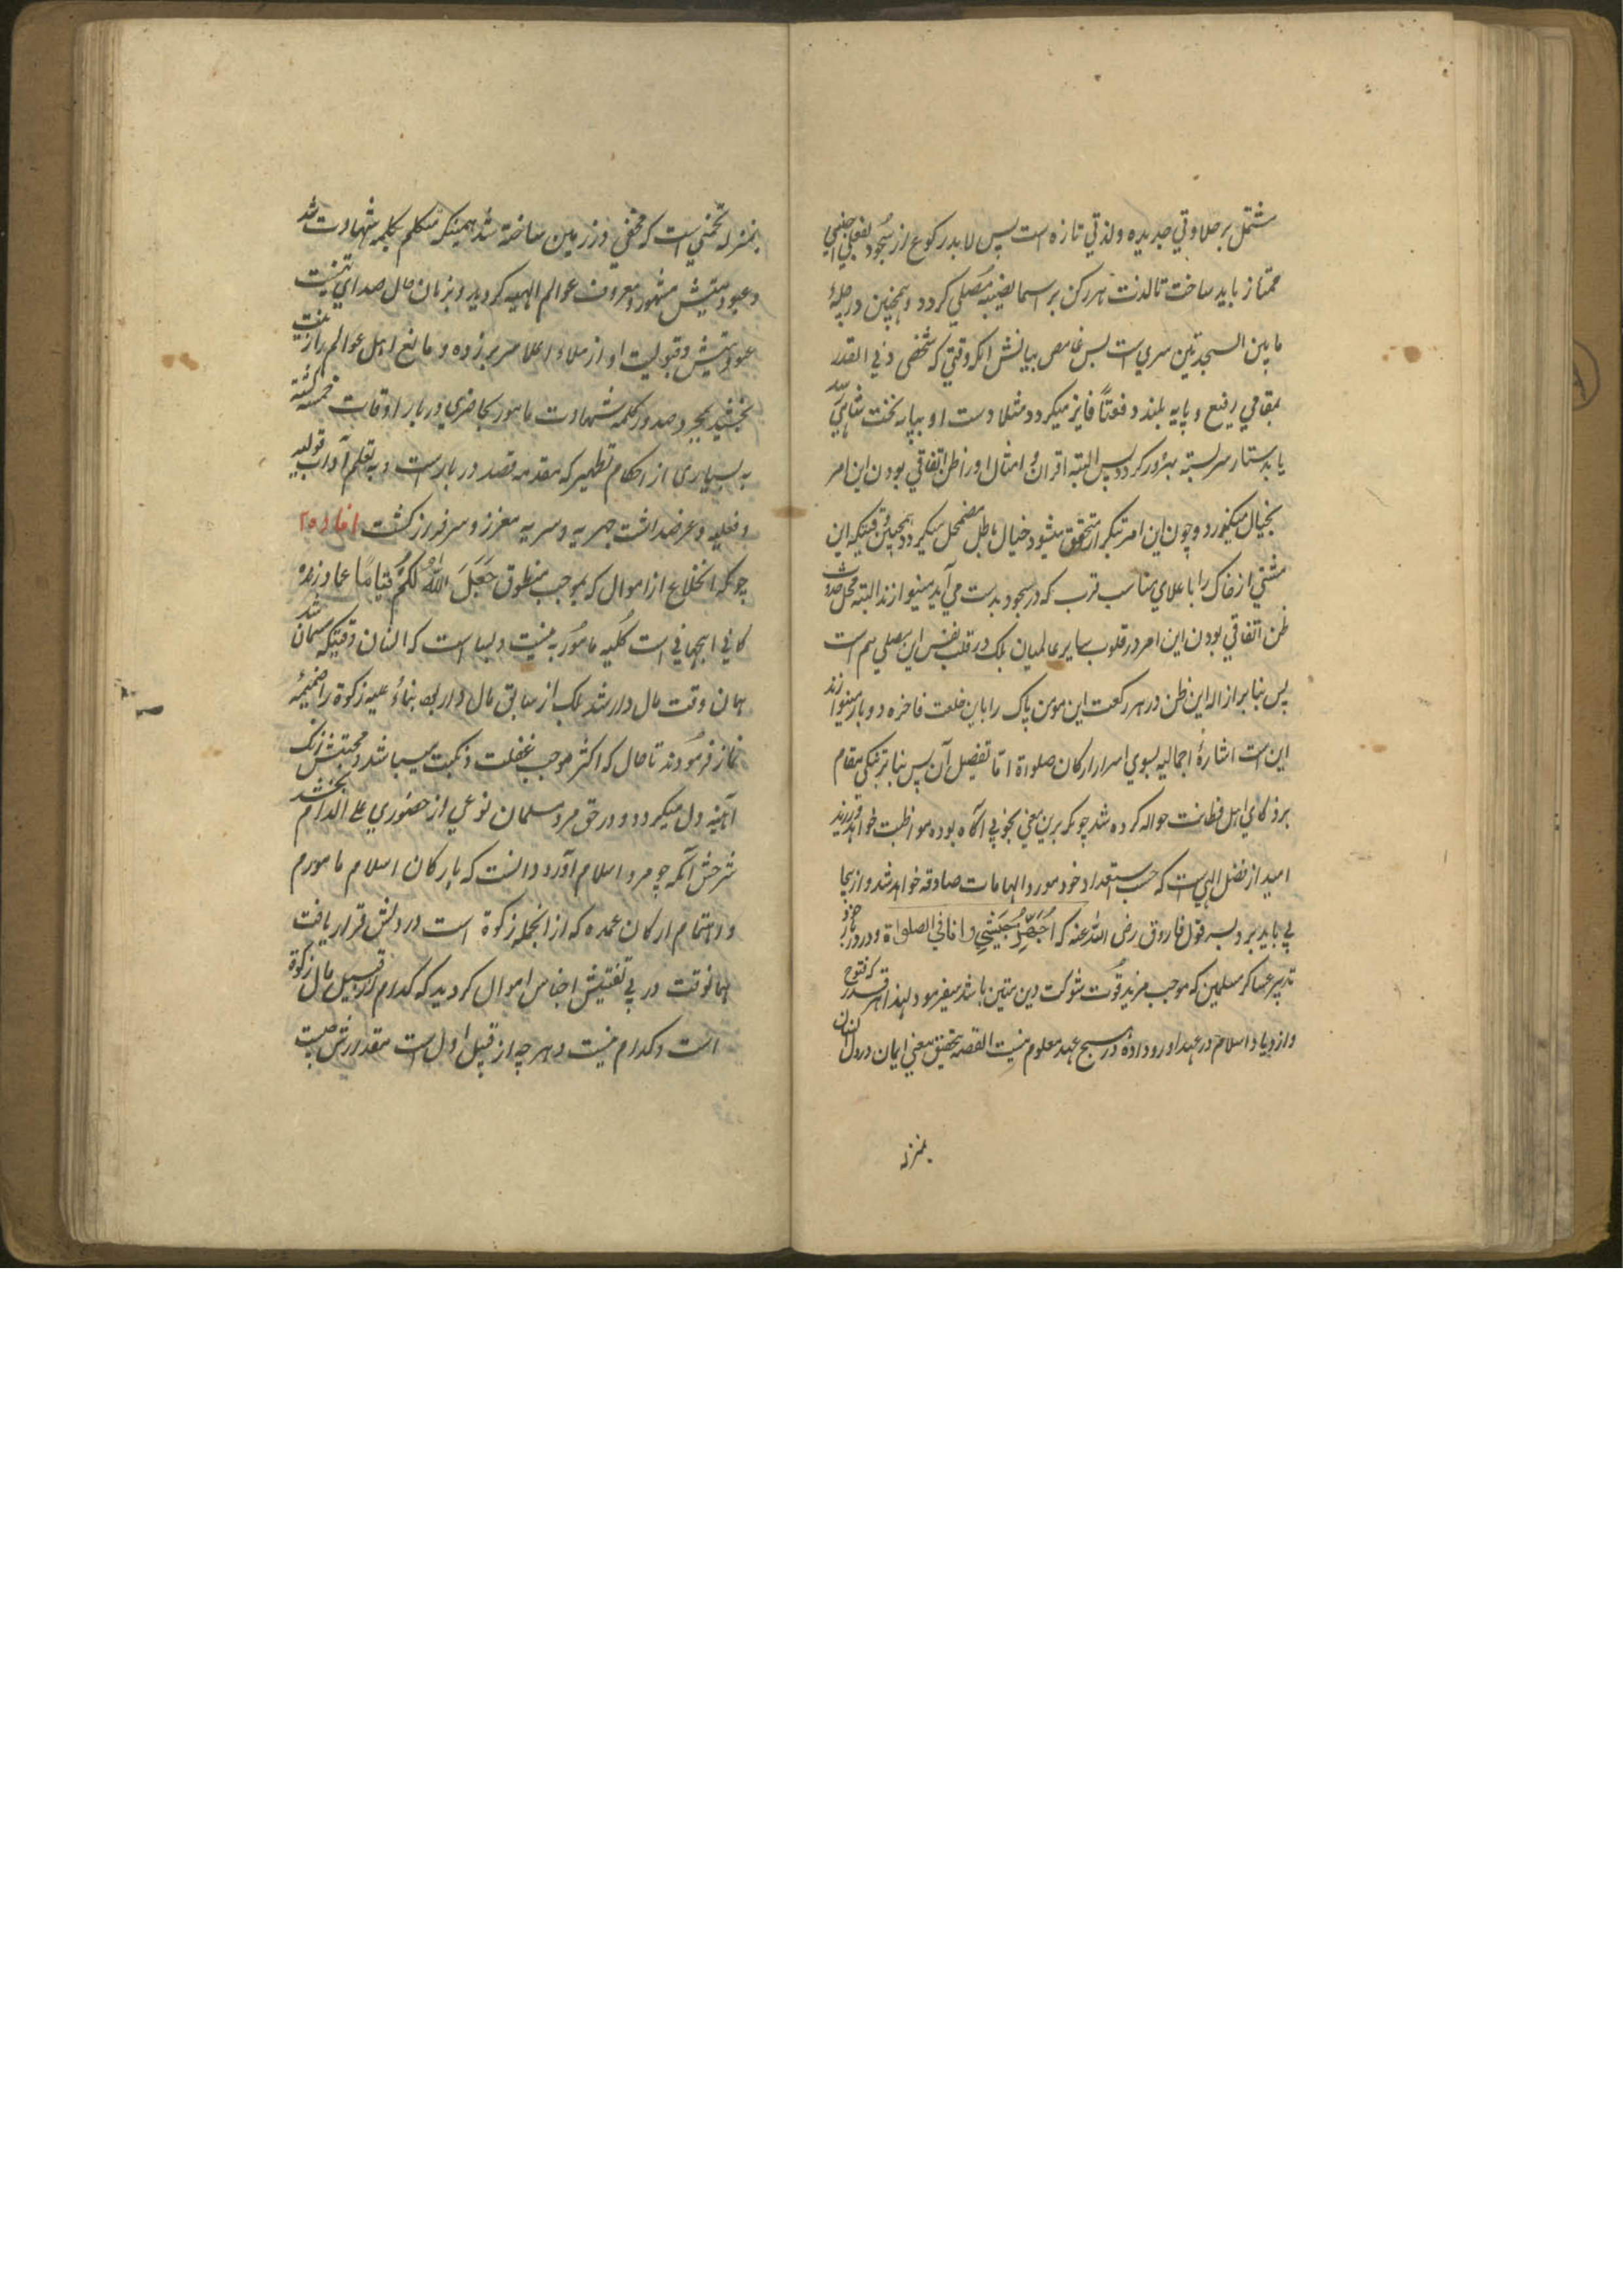 مشتمل بر حلاوتي جديده ولذتي تازه است پس لابد ركوع از سجود بفعلي اجنبي
ممتاز بايد ساخت تا لذت هر ركن براسها نصيبه مصلي كردد وهمچنين در جلسهٔ
ما بين السجدتين سري است بس غامض بيانش انكه وقتي كه شخصي ذي القدر
بمقامي رفيع و پايه بلند دفعتاً فايز ميكردد مثلا دست او بپايه تخت شاهي رسد
يا بدستار سر بسته بهره ور كردد پس البته اقران و امثال او را ظن اتفاقي بودن اين امر
بخيال ميكذرد و چون اين امر بتكرار متحقق ميشود خيال باطل مضمحل ميكردد همچنين وقتيكه اين
مشتي از خاك را با علاي مناسب قرب كه در سجود بدست مي آيد مينوازند البته محل حدوث
ظن اتفاقي بودن اين امر در قلوب ساير عالميان بلكه در قلب نفس اين مصلي هم است
پس بنا بر ازاله اين ظن در هر ركعت اين مومن پاك را باين خلعت فاخره دو بار مينوازند
اين است اشارهٔ اجماليه بسوي اسرار اركان صلواة اما تفصيل آن پس بنا بر تنكي مقام
بر ذكاي اهل فطانت حواله كرده شد چونكه برين معني بخوبي اكاه بوده مواظبت خواهند ورزيد
اميد از فضل الهي است كه حسب استعداد خود مورد الهامات صادقه خواهد شد و از ينجا
پي بايد برد بسر قول فاروق رضي الله عنه كه اُجَهِّزُ جَيْشِي وانا في الصلواة و در نماز خود
تدبير عساكر مسلمين كه موجب مزيد قوت شوكت دين متين باشد ميفرمود لهذا هر قدر كه فتوح
وازدياد اسلام در عهد او رو داده در هيچ عهد معلوم نيست القصه تحقيق معني ايمان در دل انسان
بمنزله
بمنزله تخمي است كه مخفي در زمين ساخته شد همينكه متكلم بكلمه شهادت شد
و عبوديتش مشهور و معروف عوالم الهيه كرديد و بزبان حال صداي تهنيت
عبوديتش و قبوليت او از ملاء اعلا سر بر زده و مانع اهل عوالم را زينت
بخشيد بمجرد صدور كلمه شهادت مامور بحاضري دربار اوقات خمسه كشته
به بسياري از احكام تطهير كه مقدمه قصد دربار است و به تعلم آداب قوليه
و فعليه و عرضداشت جهريه و سريه معزز و سرفراز كشت افاده ۲
چونكه انخلاع از اموال كه بموجب منطوق جَعَلَ اللهُ لَكُمْ قِيَامًا عماد زنده
كاني اينجهاني است كليه مامور به نيست و بسا است كه انسان وقتيكه مسلمان شد
همان وقت مال دار شد بلكه از سابق مال دار بود بناءً عليه زكوة را ضميمهٔ
نماز فرمودند تا مال كه اكثر موجب غفلت و نكبت ميباشد و محبتش زنك
آهينه دل ميكردد و در حق مرد مسلمان نوعي از حضوري علي الدوام بخشد
شرحش آنكه چو مرد اسلام آورد و دانست كه باركان اسلام مامورم
و اهتمام اركان عمده كه از انجمله زكوة است در دلش قرار يافت
همانوقت در پي تفتيش اجناس اموال كرديد كه كدام از قبيل مال زكوة
است و كدام نيست و هر چه از قبيل اول است مقدارش چيست